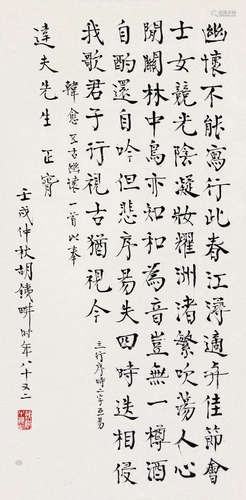 幽懷不能寫行此春江潯適與佳節會
士女競光陰凝妝耀洲渚繁吹蕩人心
間關林中鳥亦知和為音豈無一樽酒
自酌還自吟但悲序易失四時迭相侵
我歌君子行視古猶視今
行序時二字互易
韓愈五古幽懷一首此奉
達夫先生 正
壬戌仲秋胡鐵畊時年八十又二